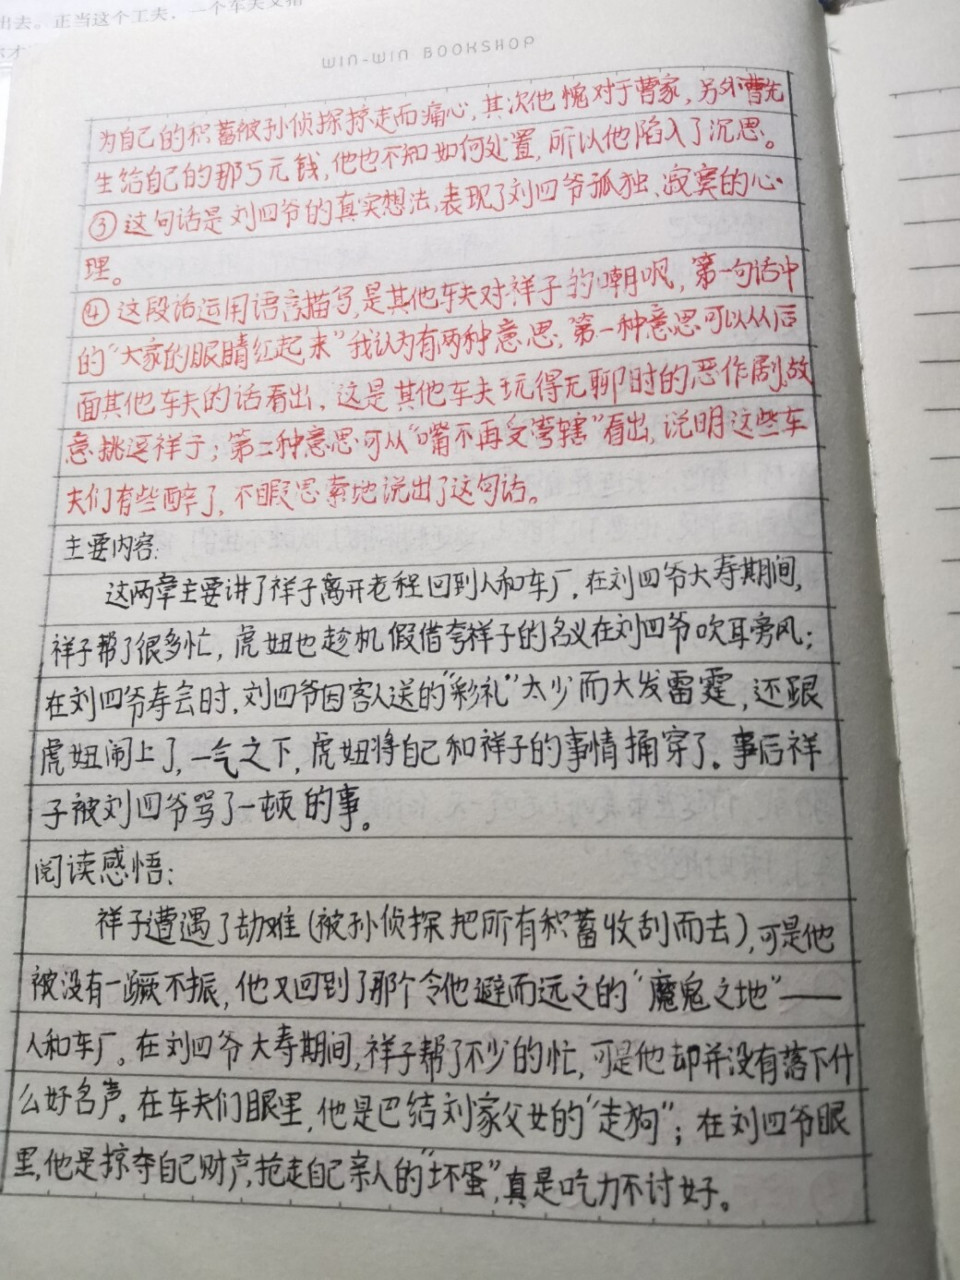 出去。正当这个工夫，一个车夫又指
WIN-WIN BOOKSHOP
为自己的积蓄被孙侦探掠走而痛心，其次他愧对于曹家，另外曹先
生给自己的那5元钱，他也不知如何处置，所以他陷入了沉思。
③这句话是刘四爷的真实想法，表现了刘四爷孤独、寂寞的心
理。
④这段话运用语言描写，是其他车夫对祥子的嘲讽，第一句话中
的“大家的眼睛红起来”我认为有两种意思，第一种意思可以从后
面其他车夫的话看出，这是其他车夫玩得无聊时的恶作剧，故
意挑逗祥子；第二种意思可从“嘴不再受管辖”看出，说明这些车
夫们有些醉了，不暇思索地说出了这句话。
主要内容：
这两章主要讲了祥子离开老程回到人和车厂，在刘四爷大寿期间，
祥子帮了很多忙，虎妞也趁机假借夸祥子的名义在刘四爷吹耳旁风；
在刘四爷寿会时，刘四爷因客人送的“彩礼”太少而大发雷霆，还跟
虎妞闹上了，一气之下，虎妞将自己和祥子的事情捅穿了。事后祥
子被刘四爷骂了一顿的事。
阅读感悟：
祥子遭遇了劫难（被孙侦探把所有积蓄收刮而去），可是他
被没有一蹶不振，他又回到了那个令他避而远之的“魔鬼之地”——
人和车厂。在刘四爷大寿期间，祥子帮了不少的忙，可是他却并没有落下什
么好名声。在车夫们眼里，他是巴结刘家父女的“走狗”；在刘四爷眼
里，他是掠夺自己财产，抢走自己亲人的“坏蛋”，真是吃力不讨好。